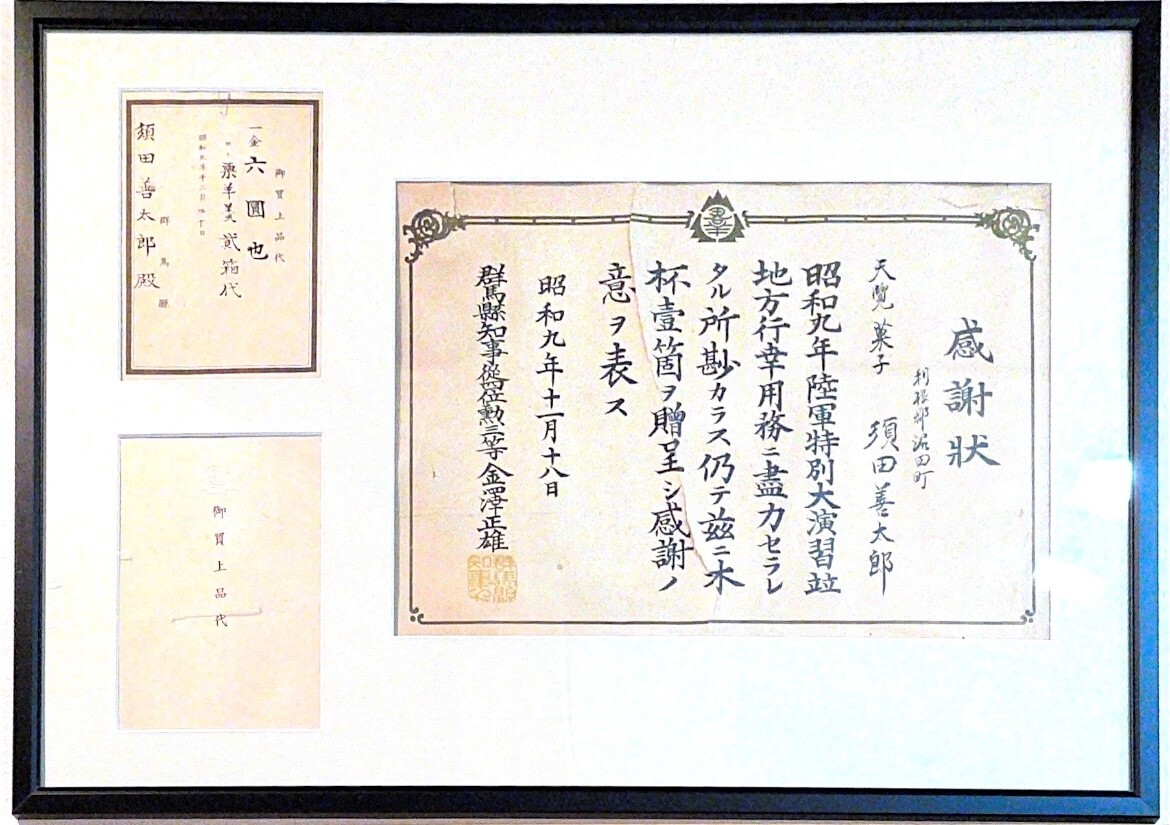 感謝狀
利根郡沼田町
天覽菓子 須田善太郎
昭和九年陸軍特別大演習竝
地方行幸用務ニ盡力セラレ
タル所尠カラス仍テ玆ニ木
杯壹箇ヲ贈呈シ感謝ノ
意ヲ表ス
昭和九年十一月十八日
群馬縣知事從四位勲三等金澤正雄
御買上品代
一金六圓也
栗羊羹貳箱代
須田善太郎殿
御買上品代